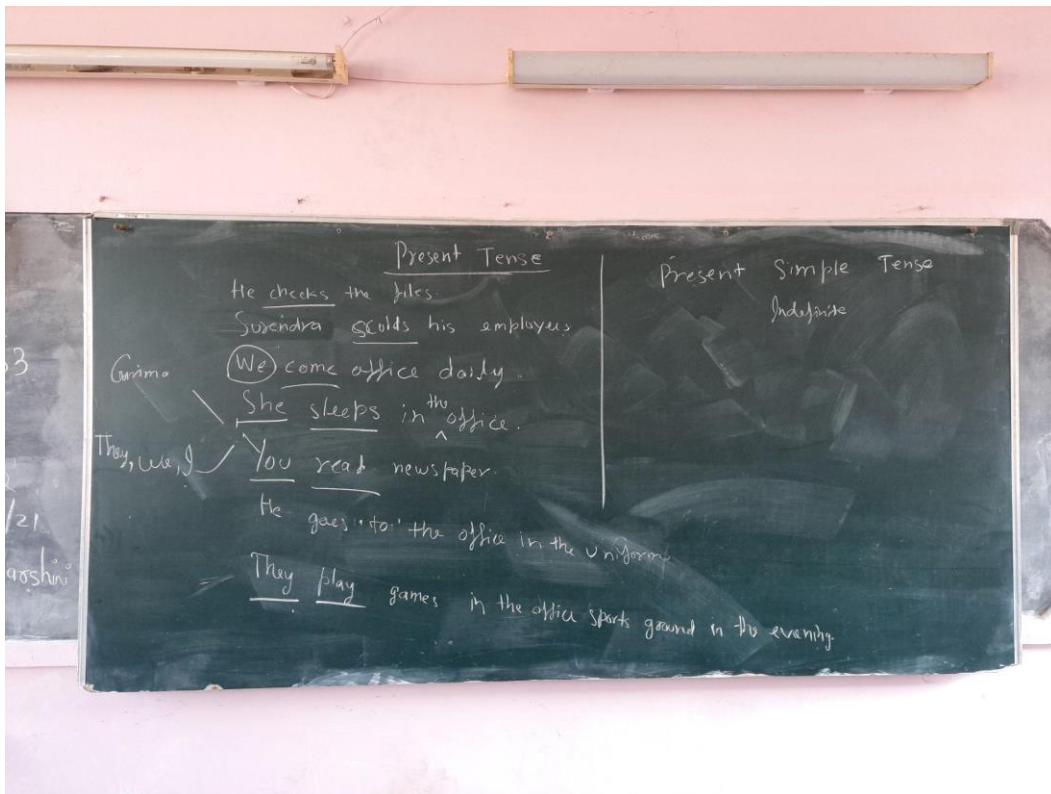 Present Tense
He checks the files.
Surendra scolds his employees
We come office daily.
She sleeps in the office.
You read newspaper.
He goes "to" the office in the uniform
They play games in the office sports ground in the evening.
They, we, I
Present Simple Tense
Indefinite
3
/21
arshini